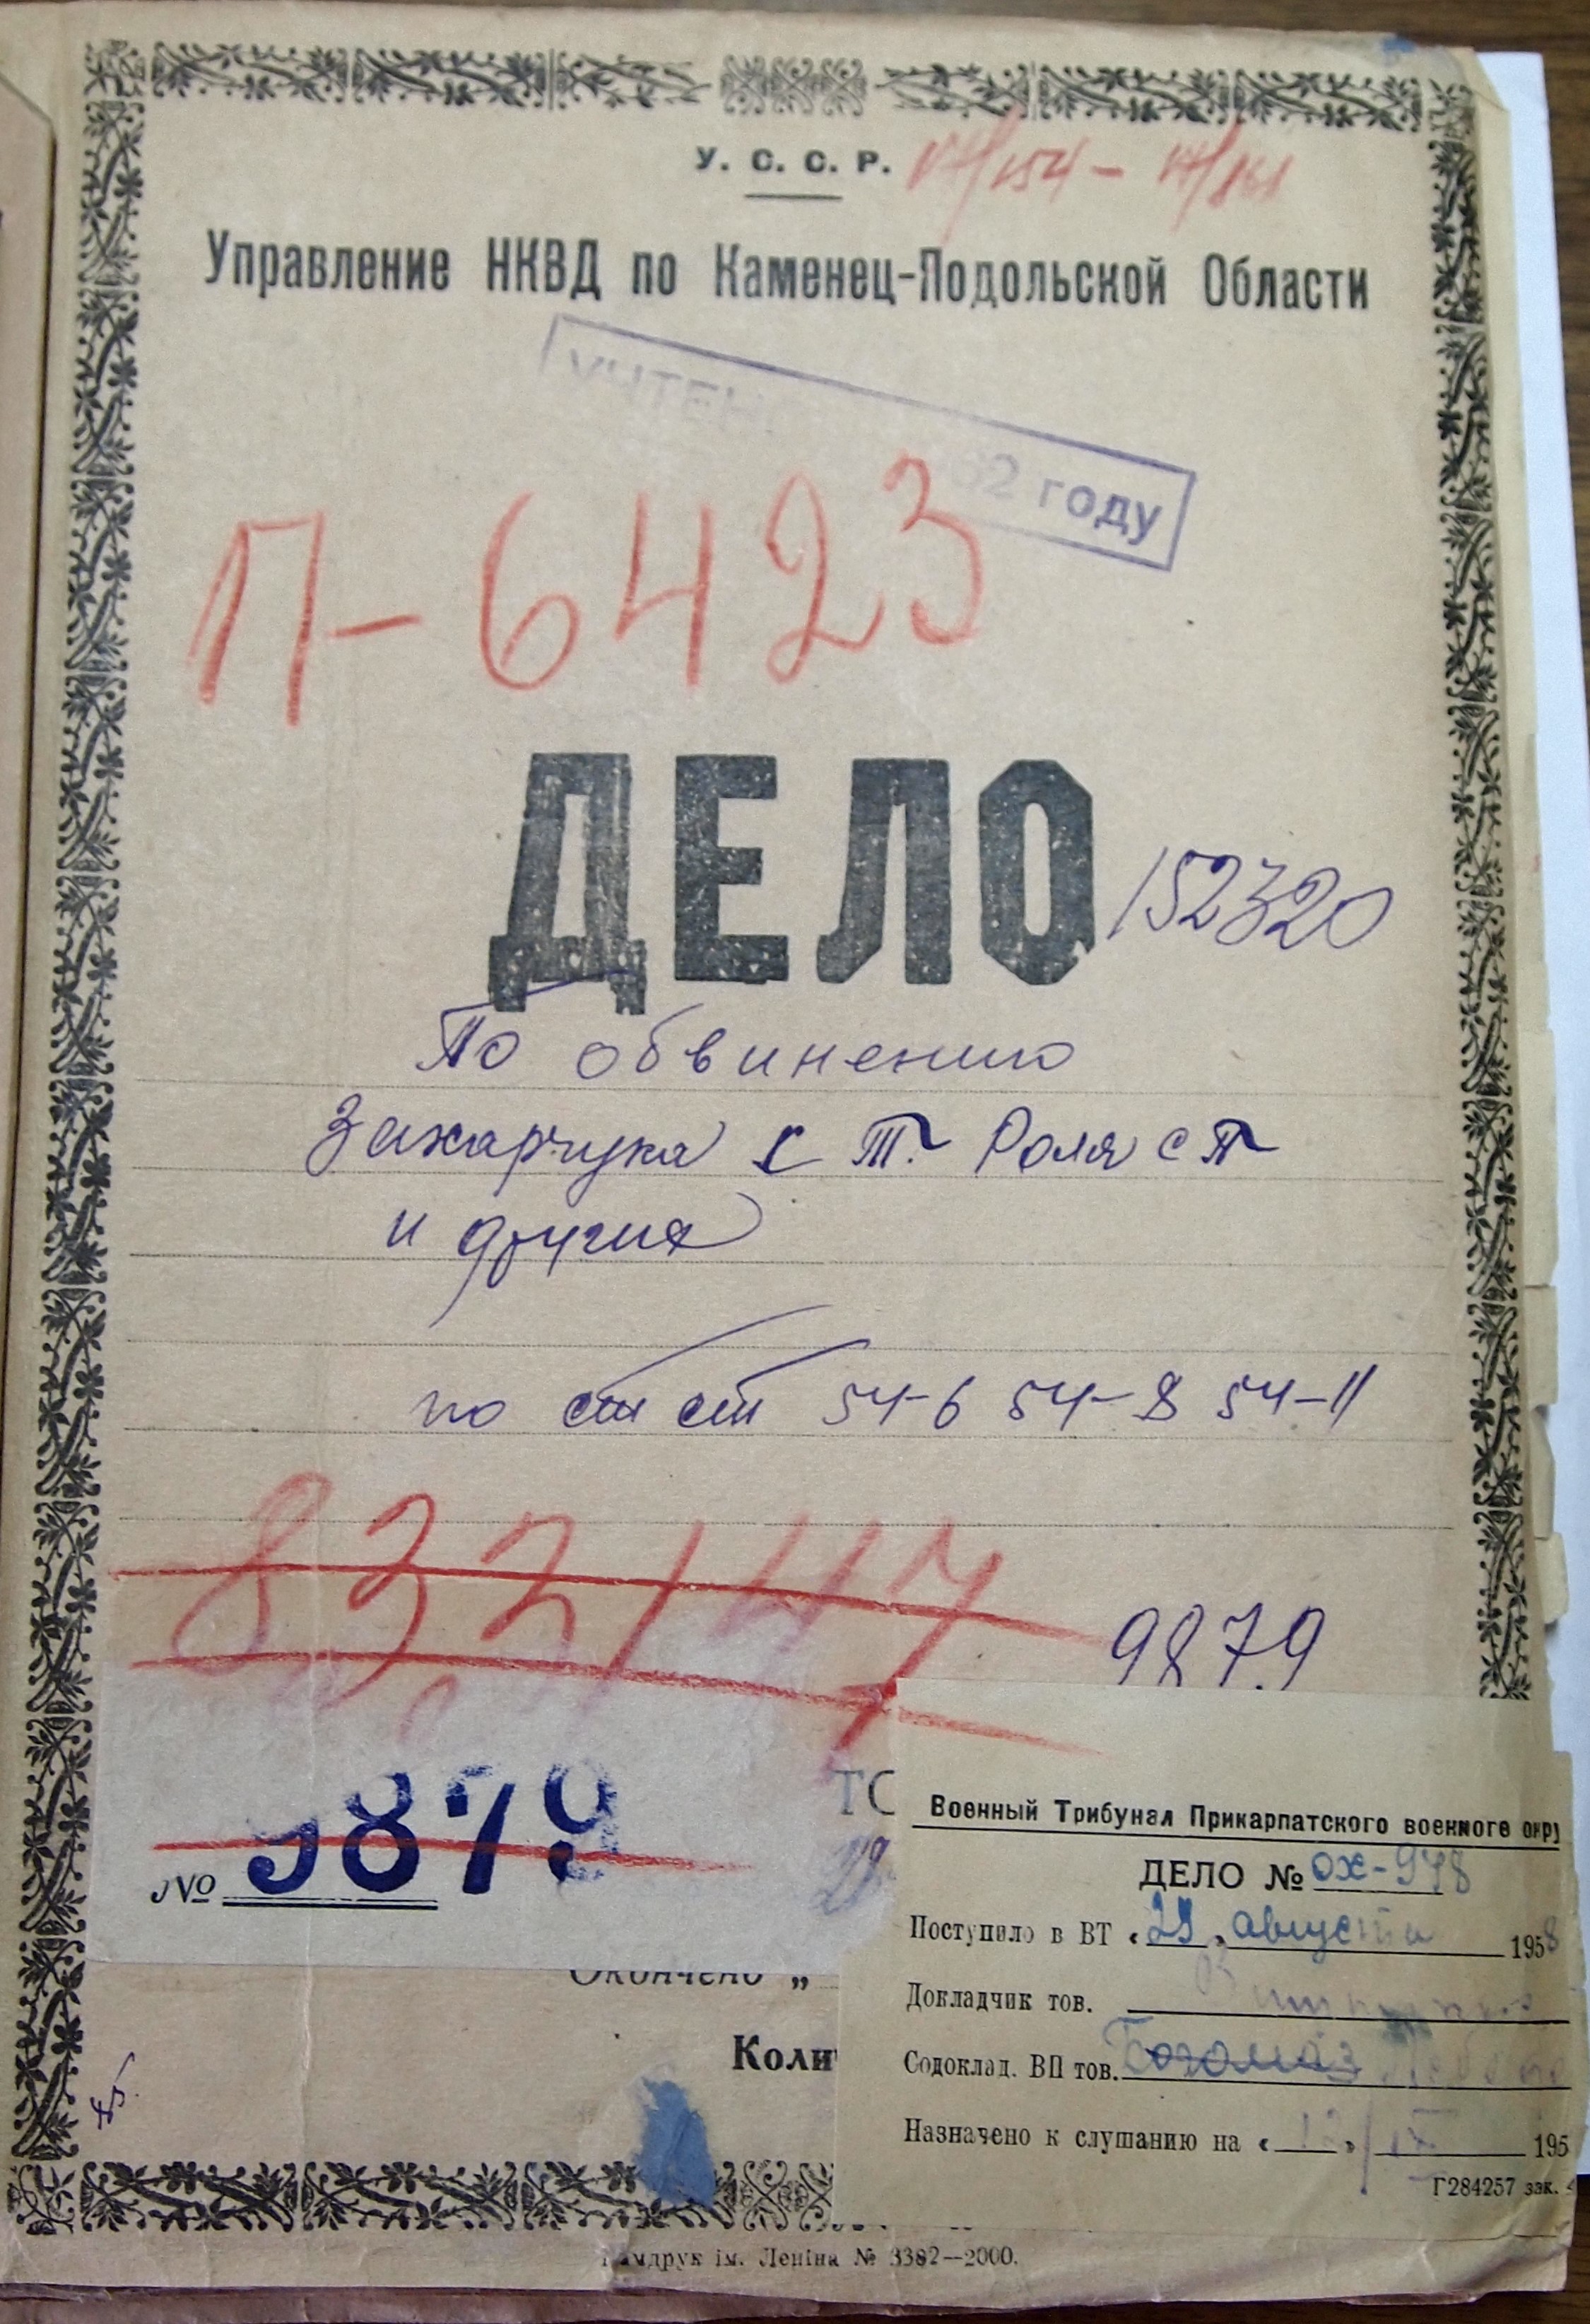 У. С. С. Р.
Управление НКВД по Каменец-Подольской Области
УЧТЕН 32 году
П-6423
ДЕЛО
152320
По обвинению
Захарчука К Т. Роля С П
и других
по ст ст 54-6 54-8 54-11
832147
9879
№ 9879
Военный Трибунал Прикарпатского военного окру
ДЕЛО № ох-978
Поступило в ВТ « » августа 1958
Докладчик тов.
Содоклад. ВП тов. Богомаз
Назначено к слушанию на « » 195
Г284257 зак.
Окончено „
Коли
Камдрук ім. Леніна № 3382—2000.